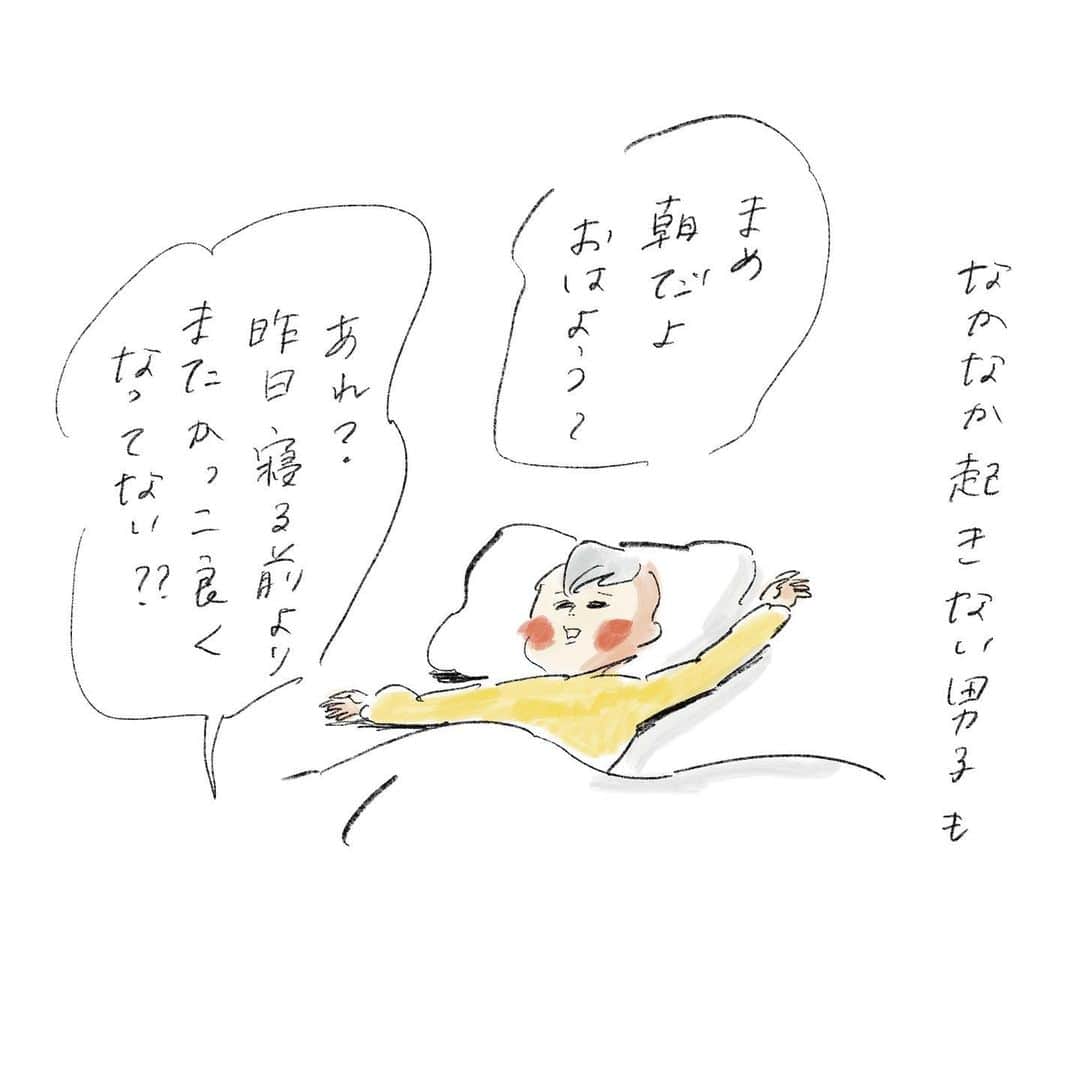 なかなか起きない男子も
まめ
朝だよ
おはよう〜
あれ?
昨日寝る前より
またかっこ良く
なってない??